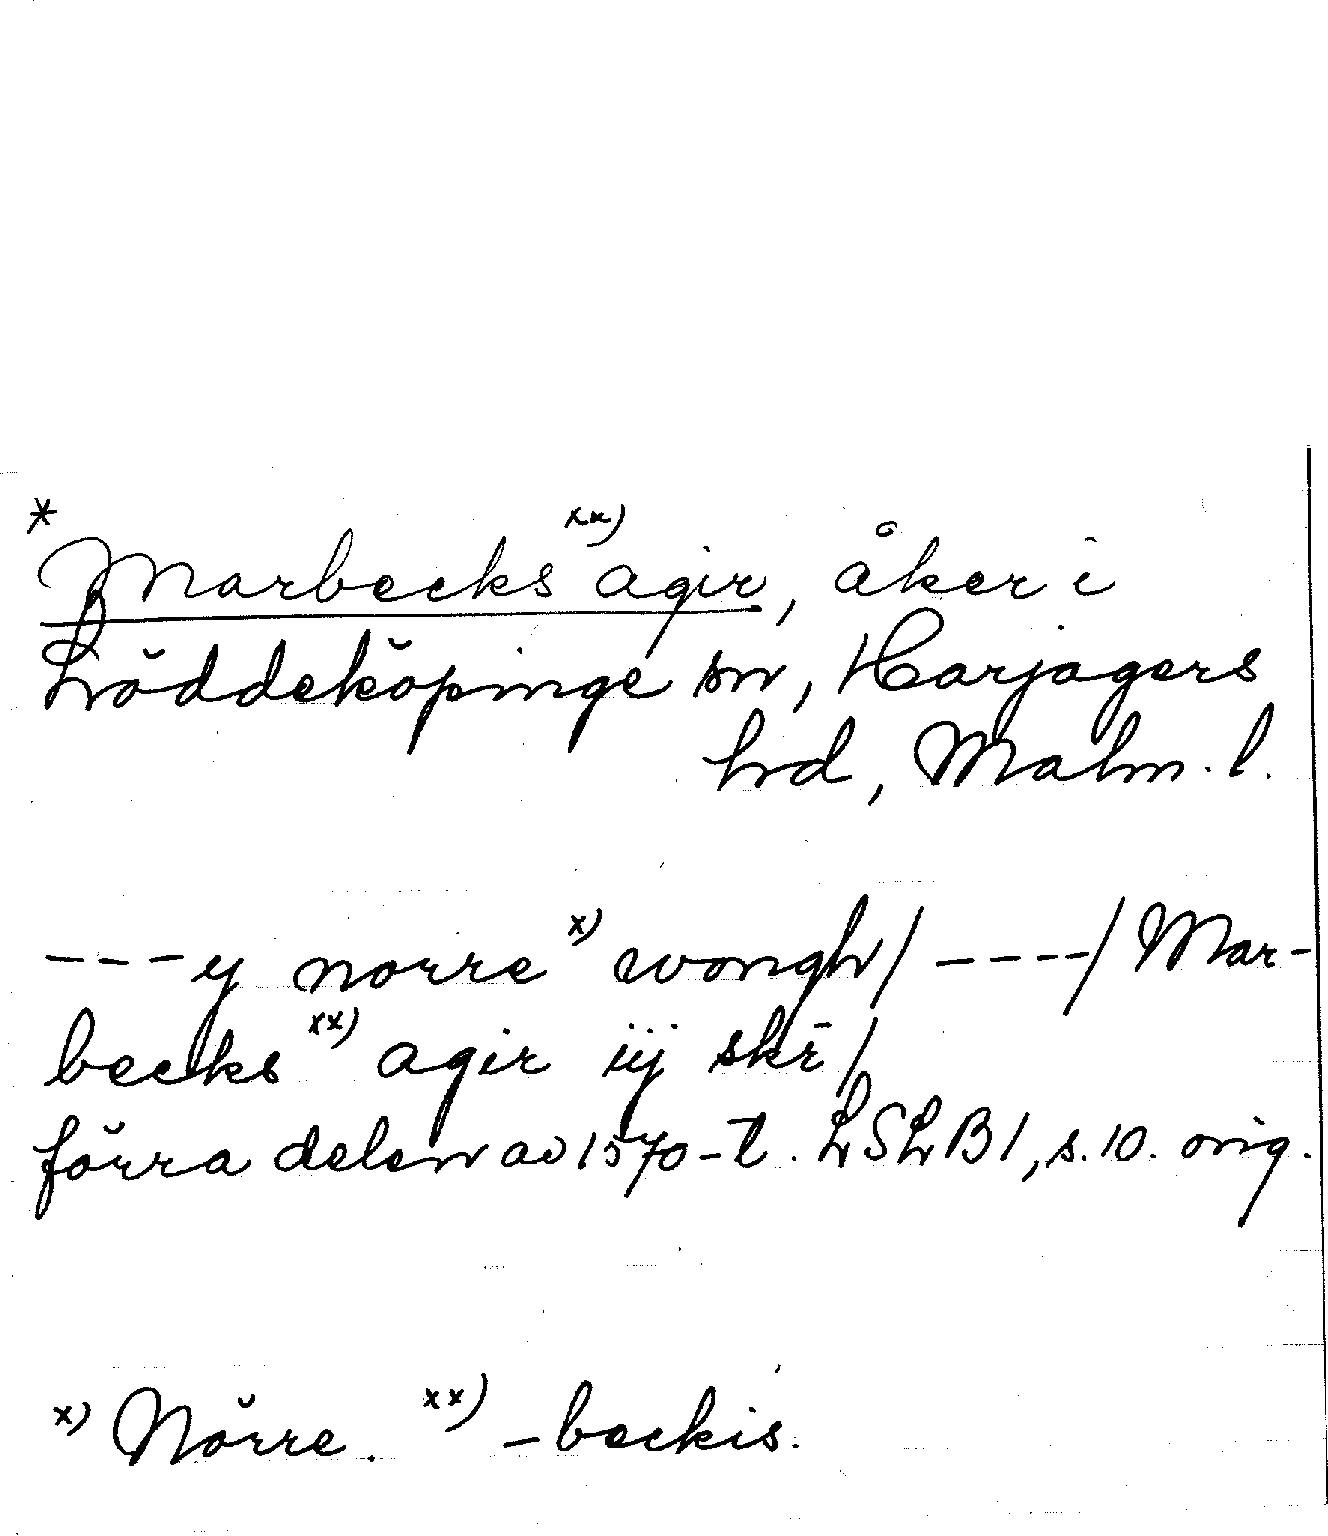 * Marbecks xx) agir, åker i
Löddeköpinge sn, Harjagers
hd, Malm. l.
---y norre x) wongh/ ----/ Mar-
becks xx) agir iij skē/
förra delen av 1570-t. LSLB1, s. 10. orig.
x) Nörre. xx) -beckis.